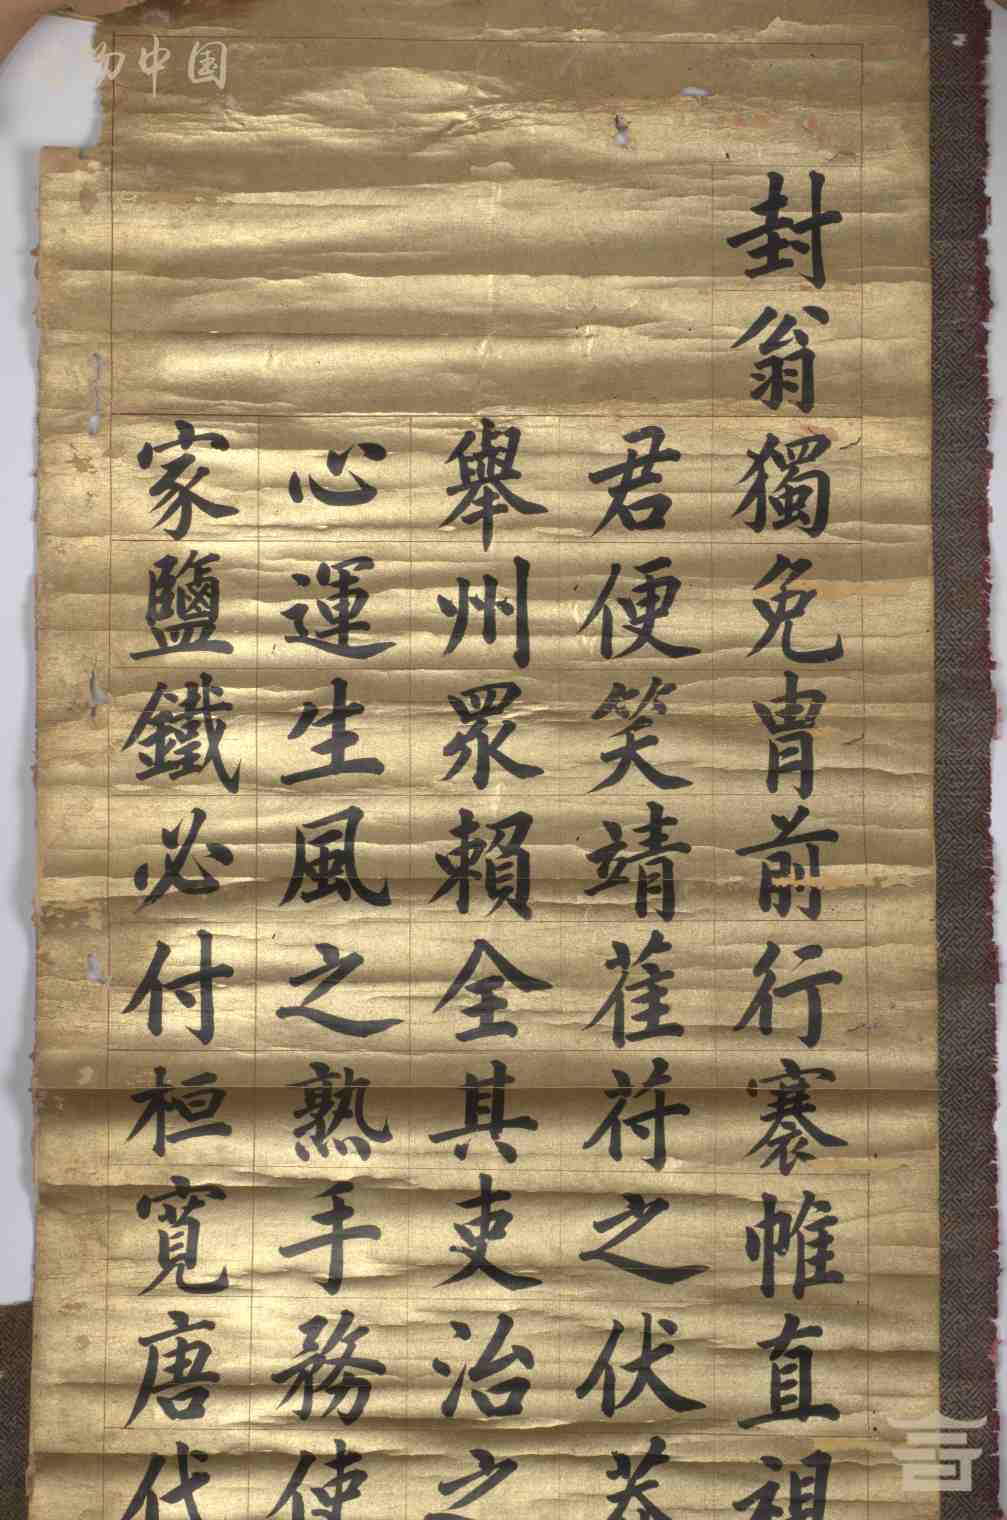 中国
封翁獨免冑前行褰帷直
君便笑靖萑苻之伏莽
舉州眾賴全其吏治之
心運生風之熟手務使
家鹽鐵必付桓寬唐代